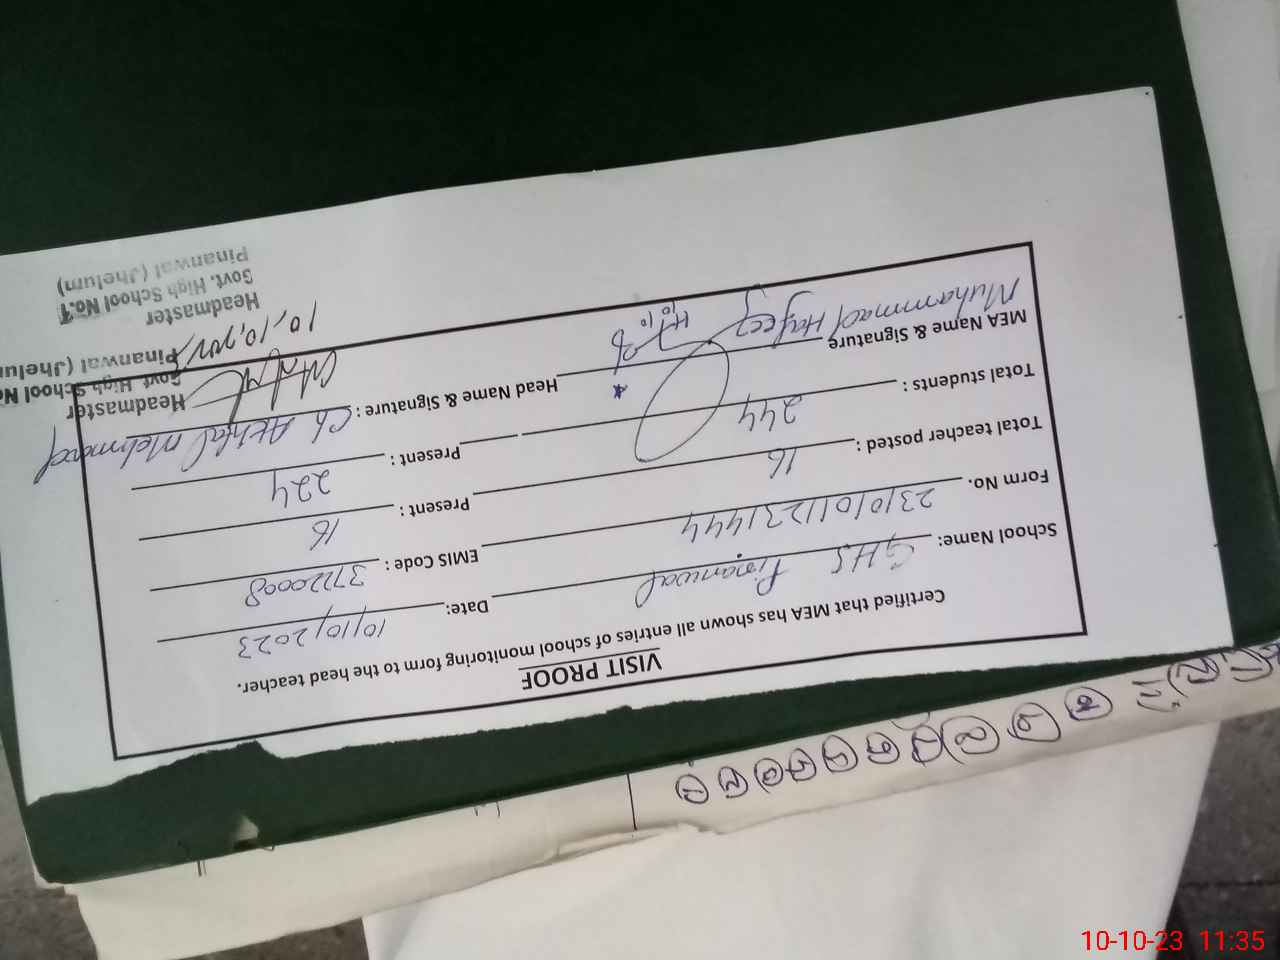 VISIT PROOF
Certified that MEA has shown all entries of school monitoring form to the head teacher.
School Name: GHS Pinanwal Date: 10/10/2023
Form No. 23101011231444 EMIS Code : 37220008
Total teacher posted : 16 Present : 16
Total students : 244 Present : 224
MEA Name & Signature Muhammad Hafeez Head Name & Signature : Ch Mehmood
10,10,
Headmaster
Govt. High School No
Pinanwal (Jhelum
Headmaster
Govt. High School No.1
Pinanwal (Jhelum)
10-10-23 11:35